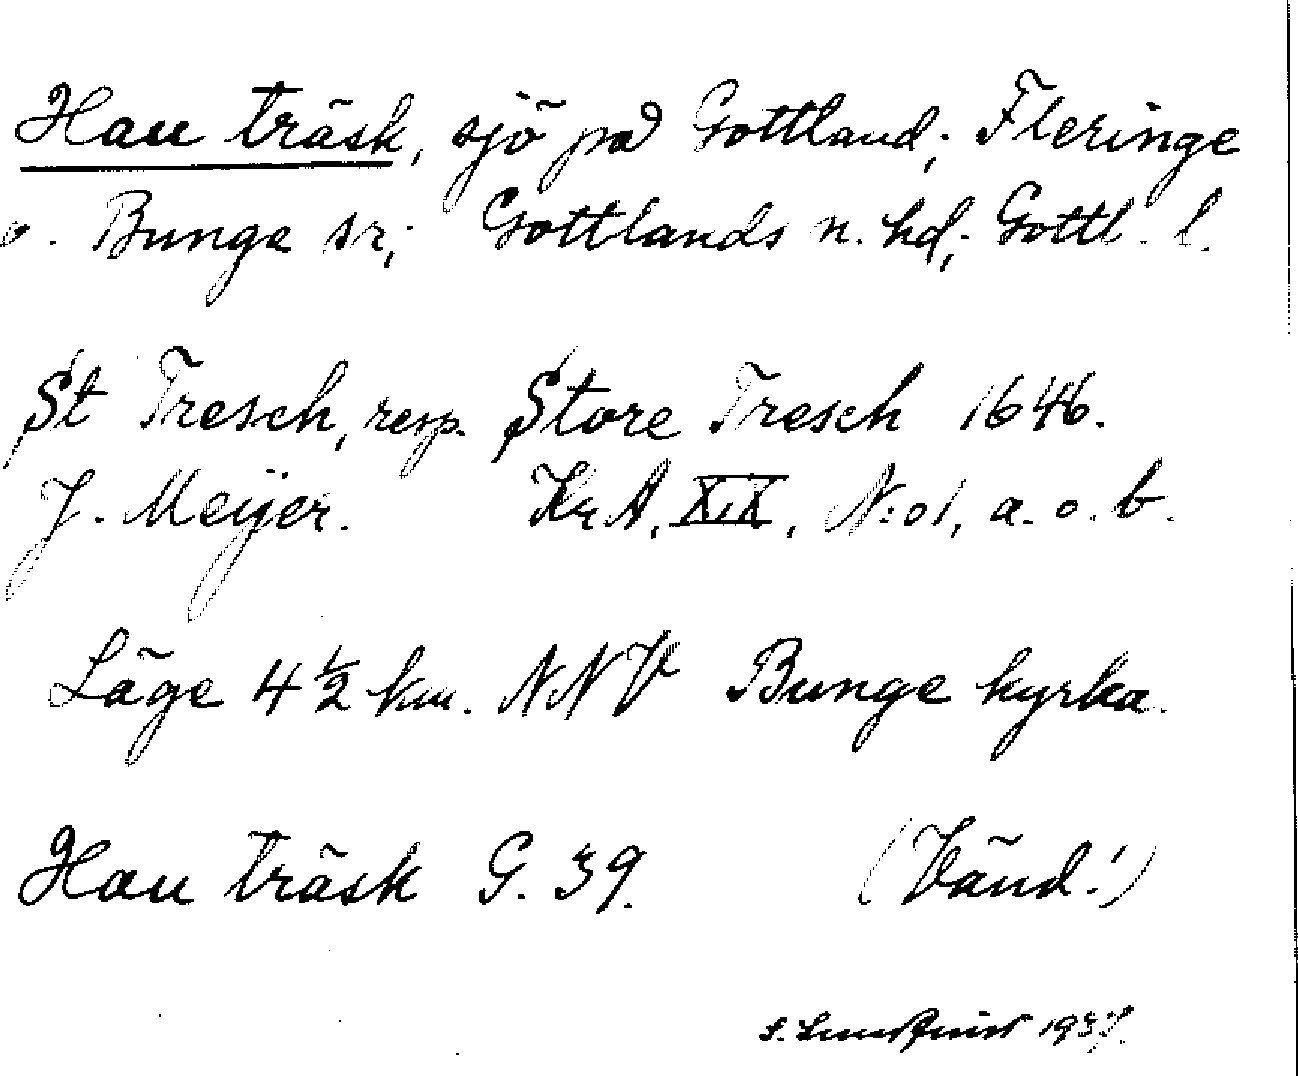 Hau träsk, sjö på Gottland; Fleringe
o. Bunge sr; Gottlands n. hd; Gottl. l.
St Tresch, resp. Store Tresch 1646.
J. Meijer. Kr A, XIX, N:o 1, a. o. b.
Läge 4 1/2 km. NNV Bunge kyrka.
Hau träsk G. 39. (Vänd!)
S. Lundquist 1937.